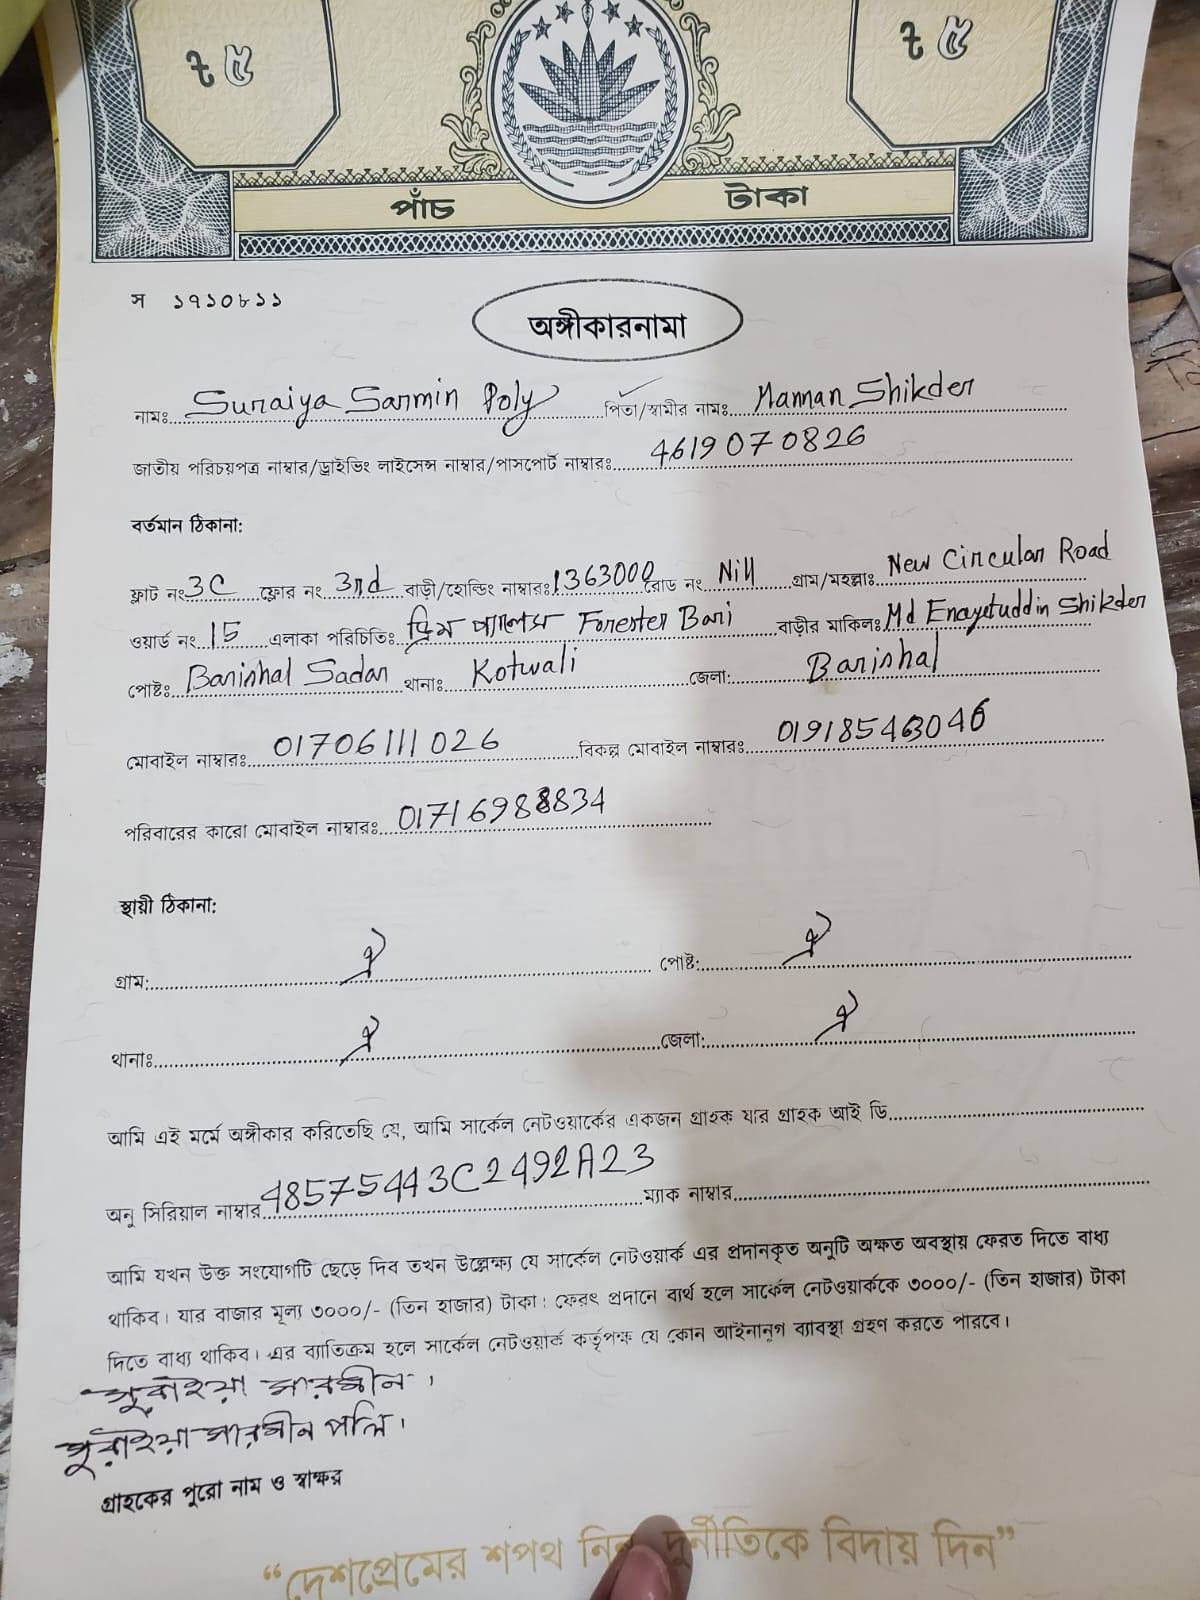 ৳ ৫ ৳ ৫
পাঁচ টাকা
স ১৭১০৮১১
অঙ্গীকারনামা
নামঃ Suraiya Sarmin Poly পিতা/স্বামীর নামঃ Mannan Shikder
জাতীয় পরিচয়পত্র নাম্বার/ড্রাইভিং লাইসেন্স নাম্বার/পাসপোর্ট নাম্বারঃ 4619070826
বর্তমান ঠিকানা:
ফ্লাট নং 3C ফ্লোর নং 3rd বাড়ী/হোল্ডিং নাম্বারঃ 1363000 রোড নং Nill গ্রাম/মহল্লাঃ New Circular Road
ওয়ার্ড নং 15 এলাকা পরিচিতিঃ ড্রিম প্যালেস Forester Bari বাড়ীর মাকিলঃ Md Enayetuddin Shikder
পোষ্টঃ Barishal Sadar থানাঃ Kotwali জেলা: Barishal
মোবাইল নাম্বারঃ 01706111026 বিকল্প মোবাইল নাম্বারঃ 01918546046
পরিবারের কারো মোবাইল নাম্বারঃ 01716988834
স্থায়ী ঠিকানা:
গ্রাম: ঐ পোষ্ট: ঐ
থানাঃ ঐ জেলা: ঐ
আমি এই মর্মে অঙ্গীকার করিতেছি যে, আমি সার্কেল নেটওয়ার্কের একজন গ্রাহক যার গ্রাহক আই ডি
অনু সিরিয়াল নাম্বার 48575443C2492A23 ম্যাক নাম্বার
আমি যখন উক্ত সংযোগটি ছেড়ে দিব তখন উল্লেক্ষ্য যে সার্কেল নেটওয়ার্ক এর প্রদানকৃত অনুটি অক্ষত অবস্থায় ফেরত দিতে বাধ্য
থাকিব। যার বাজার মূল্য ৩০০০/- (তিন হাজার) টাকা: ফেরৎ প্রদানে ব্যর্থ হলে সার্কেল নেটওয়ার্ককে ৩০০০/- (তিন হাজার) টাকা
দিতে বাধ্য থাকিব। এর ব্যাতিক্রম হলে সার্কেল নেটওয়ার্ক কর্তৃপক্ষ যে কোন আইনানুগ ব্যাবস্থা গ্রহণ করতে পারবে।
সুরাইয়া সারমীন।
সুরাইয়া সারমীন পলি।
গ্রাহকের পুরো নাম ও স্বাক্ষর
“দেশপ্রেমের শপথ নিন দুর্নীতিকে বিদায় দিন”